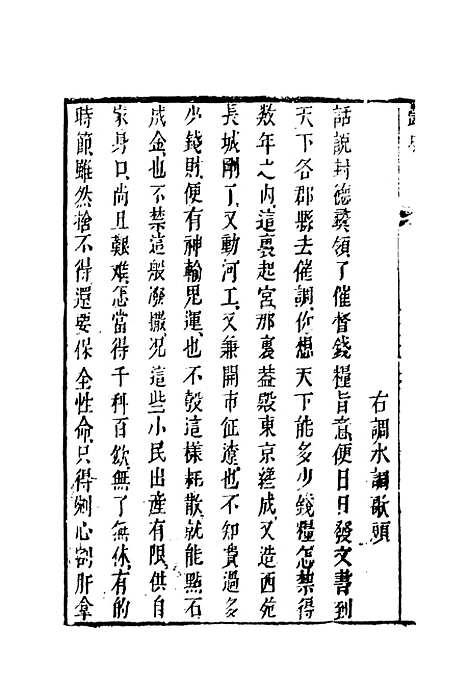 右調水調歌頭
話說封德彞領了催督錢糧旨意便日日發文書到
天下各郡縣去催調你想天下能多少錢糧怎禁得
數年之內這裏起宮那裏蓋殿東京纔成又造西苑
長城剛了又動河工又兼開市征遼也不知費過多
少錢財便有神輸鬼運也不彀這樣耗散就能點石
成金也不禁這般潑撒況這些小民出產有限供自
家身口尚且艱難怎當得千科百歛無了無休有的
時節雖然捨不得還要保全性命只得剜心割肝拿